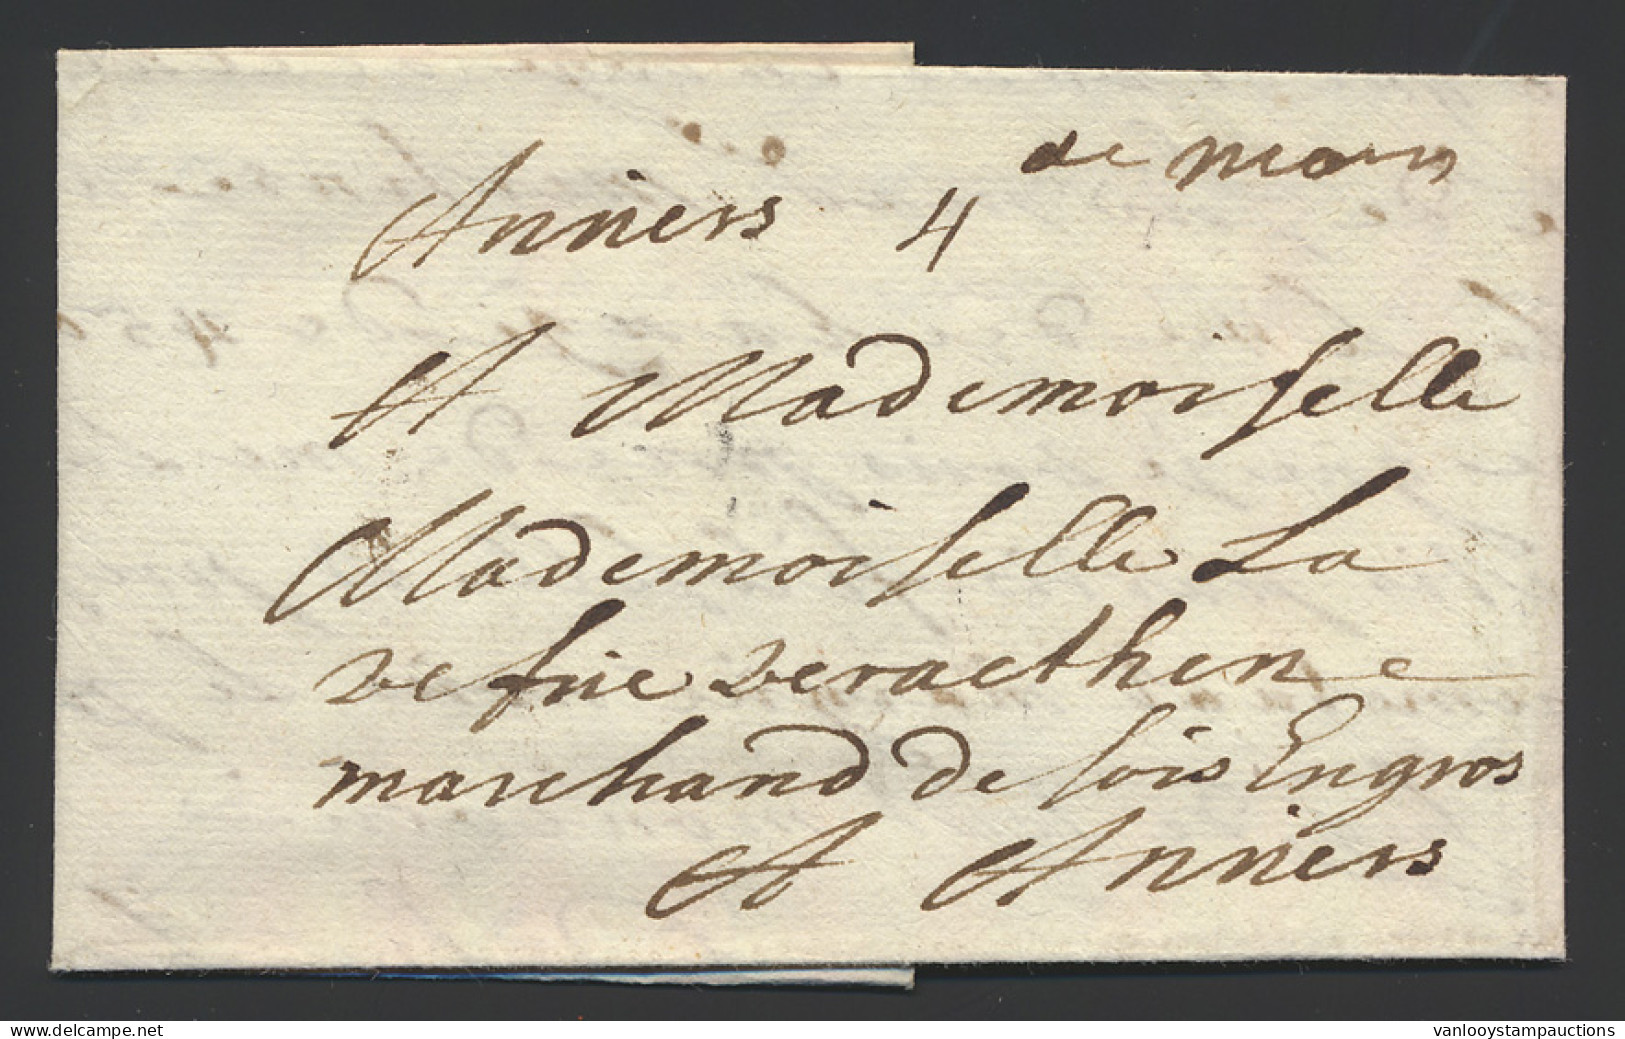 de mons
Anvers 4
A Mademoiselle
Mademoiselle La
vefve veracthen
marchand de sois Engros
A Anvers
www.delcampe.net
vanlooystampauctions